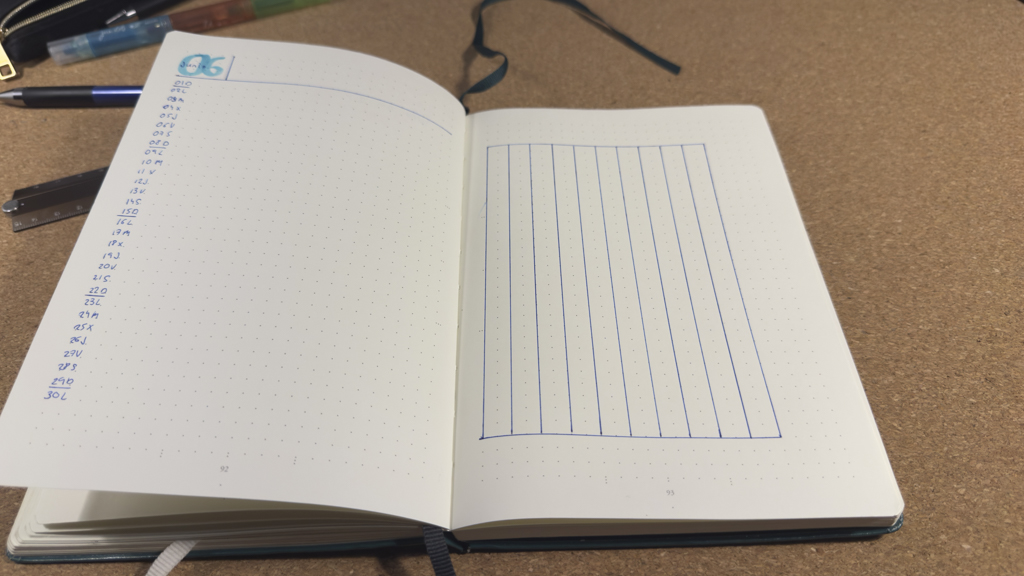 06
01D
02L
03M
04X
05J
06V
07S
08D
09L
10M
12J
13V
14S
15D
16L
17M
18X
19J
20V
21S
22D
23L
24M
25X
26J
27V
28S
29D
30L
92
93